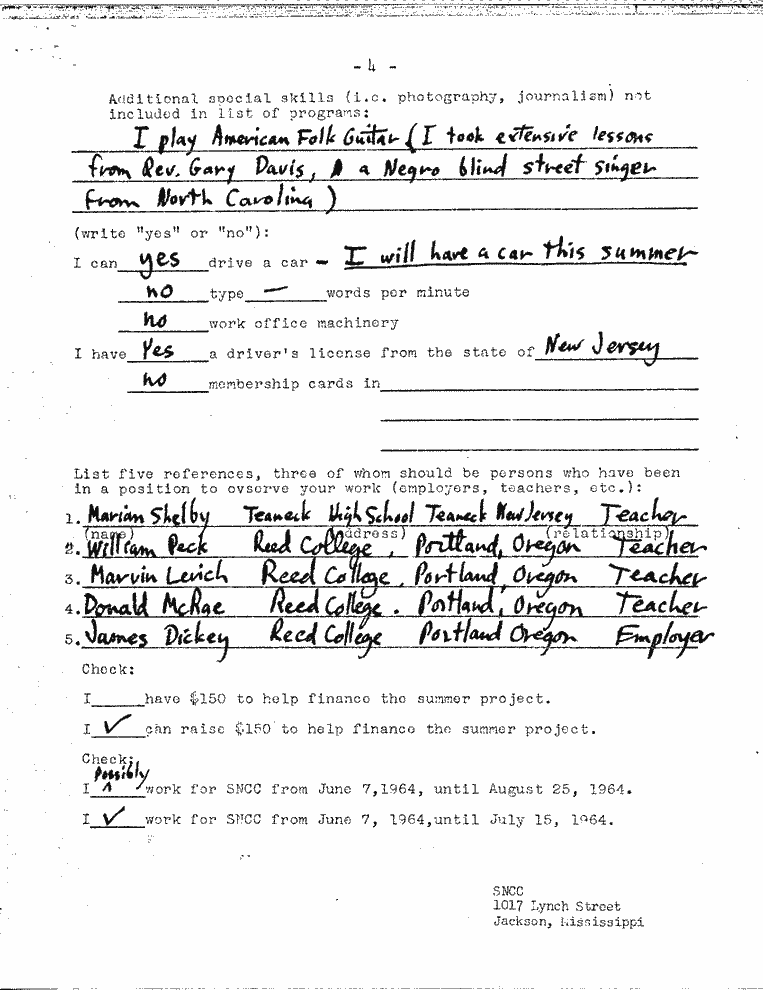 - 4 -
Additional special skills (i.e. photography, journalism) not
included in list of programs:
I play American Folk Guitar (I took extensive lessons
from Rev. Gary Davis, a Negro blind street singer
from North Carolina)
(write "yes" or "no"):
I can yes drive a car - I will have a car this summer
no type — words per minute
no work office machinery
I have Yes a driver's license from the state of New Jersey
no membership cards in
List five references, three of whom should be persons who have been
in a position to ovserve your work (employers, teachers, etc.):
1. Marian Shelby Teaneck High School Teaneck New Jersey Teacher
(name) (address) (relationship)
2. William Peck Reed College, Portland, Oregon Teacher
3. Marvin Levich Reed College, Portland, Oregon Teacher
4. Donald McRae Reed College. Portland, Oregon Teacher
5. James Dickey Reed College Portland Oregon Employer
Check:
I have $150 to help finance the summer project.
I ✓ can raise $150 to help finance the summer project.
Check:
Possibly
I ^ work for SNCC from June 7,1964, until August 25, 1964.
I ✓ work for SNCC from June 7, 1964,until July 15, 1964.
SNCC
1017 Lynch Street
Jackson, Mississippi